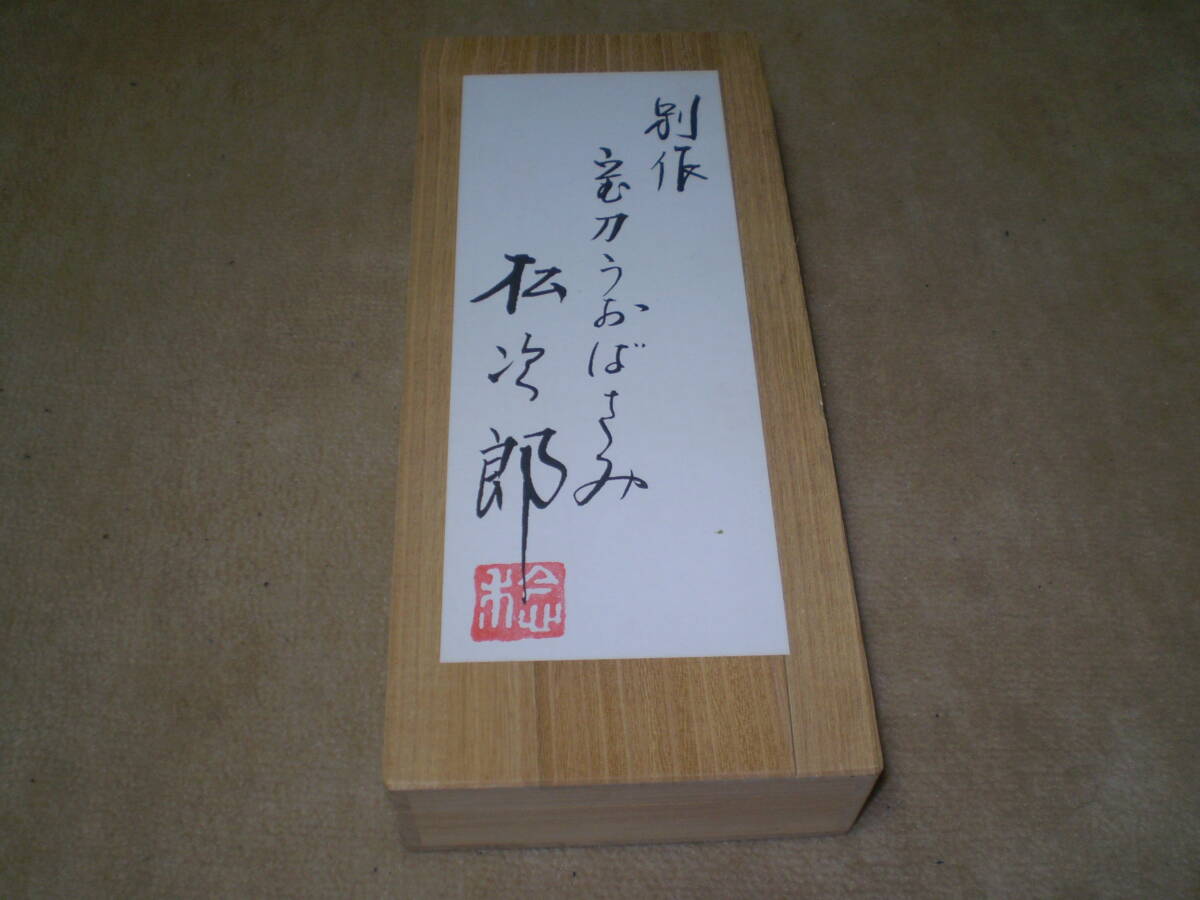 別作
宝刀うおばさみ
松次郎